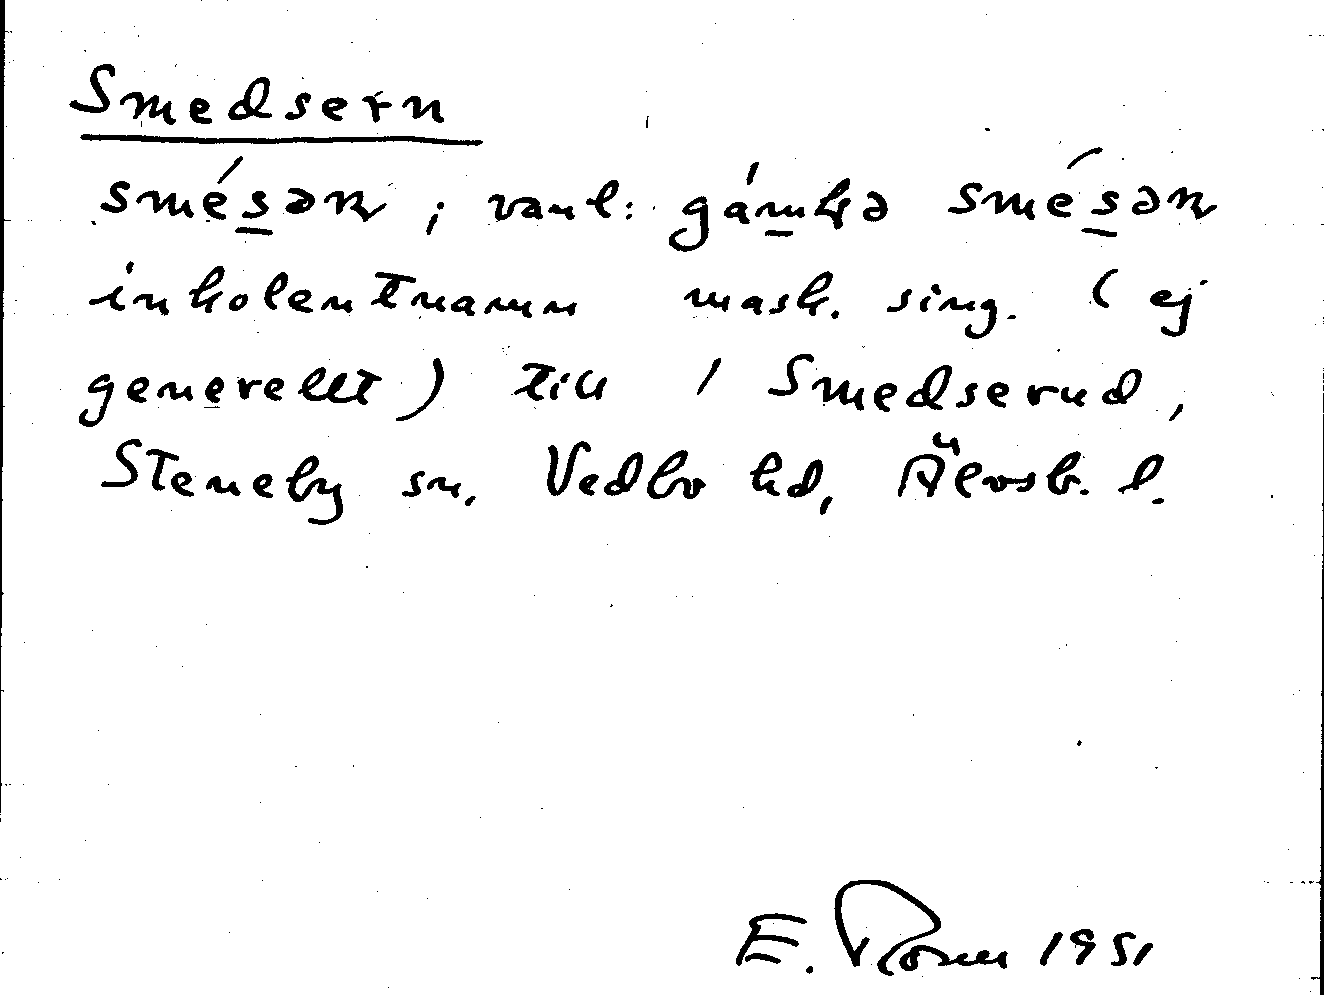 Smedsern
smésəɳ; vanl: gámɬə smésəɳ
inkolentnamn mask. sing. (ej
generellt) till / Smedserud,
Steneby sn, Vedbo hd, Älvsb. l.
E. 1951